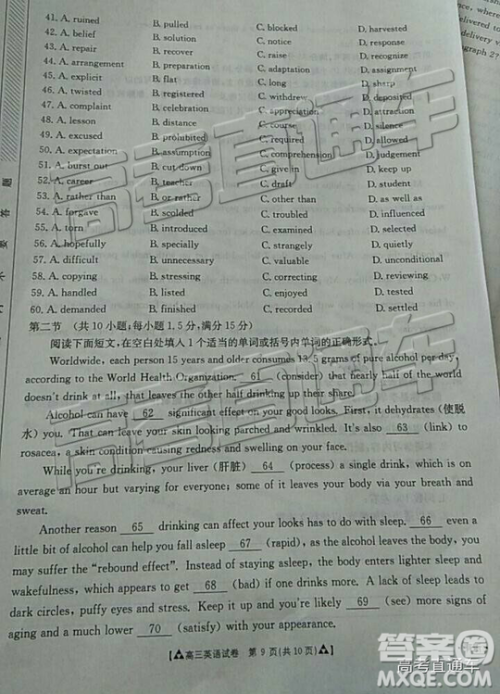 41. A. ruined B. pulled C. blocked D. harvested
42. A. belief B. solution C. notice D. response
43. A. repair B. recover C. raise D. recognize
44. A. arrangement B. preparation C. adaptation D. assignment
45. A. explicit B. flat C. long D. sharp
46. A. twisted B. registered C. withdrew D. deposited
47. A. complaint B. celebration C. appreciation D. attraction
48. A. lesson B. distance C. course D. silence
49. A. excused B. prohibited C. required D. allowed
50. A. expectation B. assumption C. comprehension D. judgement
51. A. burst out B. cut down C. give in D. keep up
52. A. career B. teacher C. draft D. student
53. A. rather than B. or rather C. other than D. as well as
54. A. forgave B. scolded C. troubled D. influenced
55. A. torn B. introduced C. examined D. selected
56. A. hopefully B. specially C. strangely D. quietly
57. A. difficult B. unnecessary C. valuable D. unconditional
58. A. copying B. stressing C. correcting D. reviewing
59. A. handed B. listed C. enjoyed D. developed
60. A. demanded B. finished C. recorded D. settled
第二节 (共 10 小题;每小题 1.5 分,满分 15 分)
阅读下面短文,在空白处填入 1 个适当的单词或括号内单词的正确形式。
Worldwide, each person 15 years and older consumes 13.5 grams of pure alcohol per day,
according to the World Health Organzation. 61 (consider) that nearly half of the world
doesn't drink at all, that leaves the other half drinking up their share.
Alcohol can have 62 significant effect on your good looks. First, it dehydrates (使脱
水) you. That can leave your skin looking parched and wrinkled. It's also 63 (link) to
rosacea, a skin condition causing redness and swelling on your face.
While you're drinking, your liver (肝脏) 64 (process) a single drink, which is on
average an hour but varying for everyone; some of it leaves your body via your breath and
sweat.
Another reason 65 drinking can affect your looks has to do with sleep. 66 even a
little bit of alcohol can help you fall asleep 67 (rapid), as the alcohol leaves the body, you
may suffer the "rebound effect". Instead of staying asleep, the body enters lighter sleep and
wakefulness, which appears to get 68 (bad) if one drinks more. A lack of sleep leads to
dark circles, puffy eyes and stress. Keep it up and you're likely 69 (see) more
aging and a much lower 70 (satisfy) with your appearance.
【高三英语试卷 第 9 页(共 10 页)】
高考直通车
答案圈